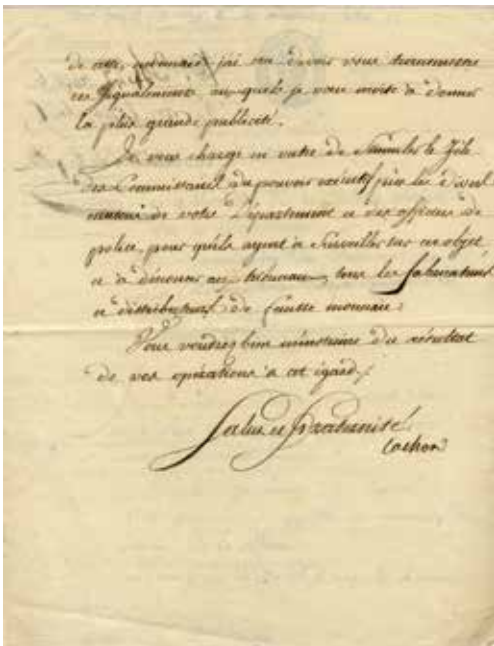 de cette monnaie j'ai cru devoir vous transmettre
les signalements auxquels je vous invite à donner
la plus grande publicité.
Je vous charge en outre de stimuler le zèle
des Commissaires du pouvoir exécutif près les
cantons de votre Département et des officiers de
police, pour qu'ils ayent à surveiller sur cet objet
et à dénoncer aux tribunaux, tous les fabricateurs
et distributeurs de fausse monnaie.
Vous voudrez bien m'instruire du résultat
de vos opérations à cet égard.
Salut et fraternité
Cochon